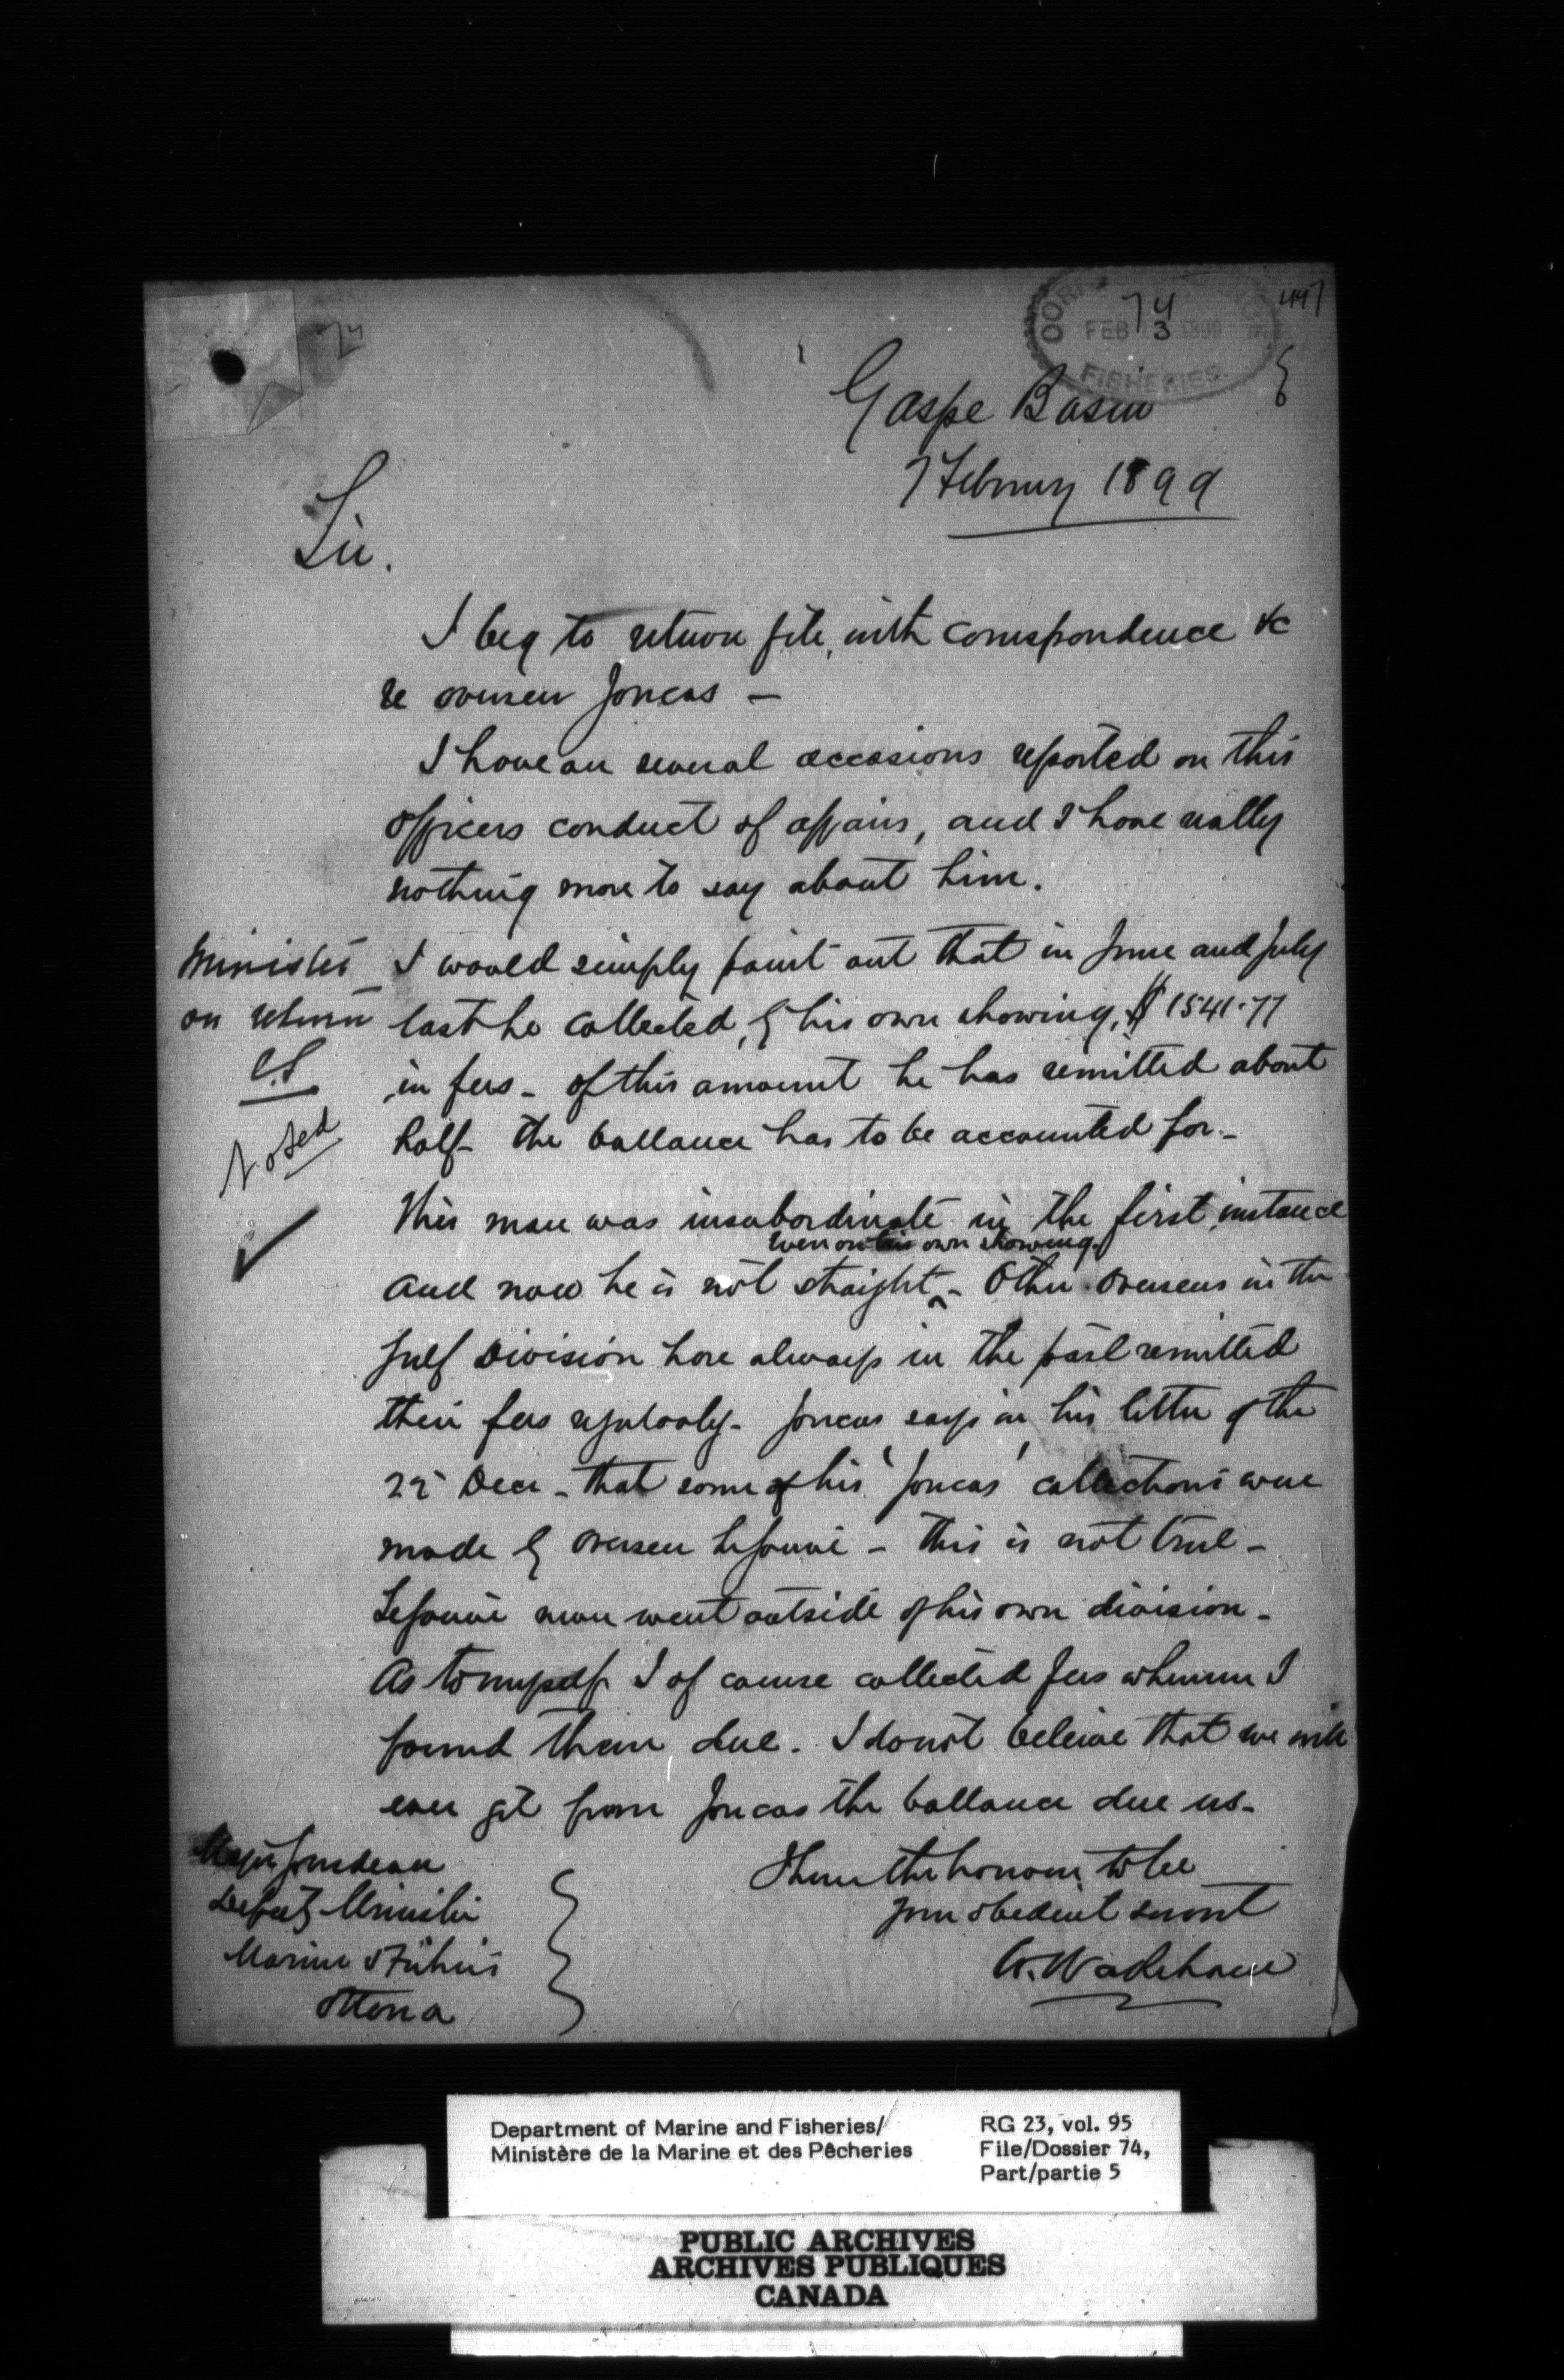 74
3
447
FEB 1899
FISHERIES.
Gaspe Basin
7 February 1899
Sir.
I beg to return file, with correspondence &c
re overseer Joncas -
I have on several occasions reported on this
officers conduct of affairs, and I have really
nothing more to say about him.
I would simply point out that in June and July
last he collected, by his own showing, $1541.77
in fees - of this amount he has remitted about
half - the ballance has to be accounted for -
Minister
on return
Noted
This man was insubordinate in the first instance
even on his own showing.
and now he is not straight - Other overseers in the
Gulf Division have always in the past remitted
their fees regularly - Joncas says in his letter of the
Decr - that some of his 'Joncas' collections were
made by overseer - this is not true -
never went outside of his own division -
As to myself I of course collected fees whenever I
found them due. I do not beleive that we will
ever get from Joncas the ballance due us -
I have the honour to be
your obedient servant
W. Wakeham
Major Gourdeau
Deputy Minister
Marine & Fisheries
Ottawa
Department of Marine and Fisheries/
Ministère de la Marine et des Pêcheries
RG 23, vol. 95
File/Dossier 74,
Part/partie 5
PUBLIC ARCHIVES
ARCHIVES PUBLIQUES
CANADA